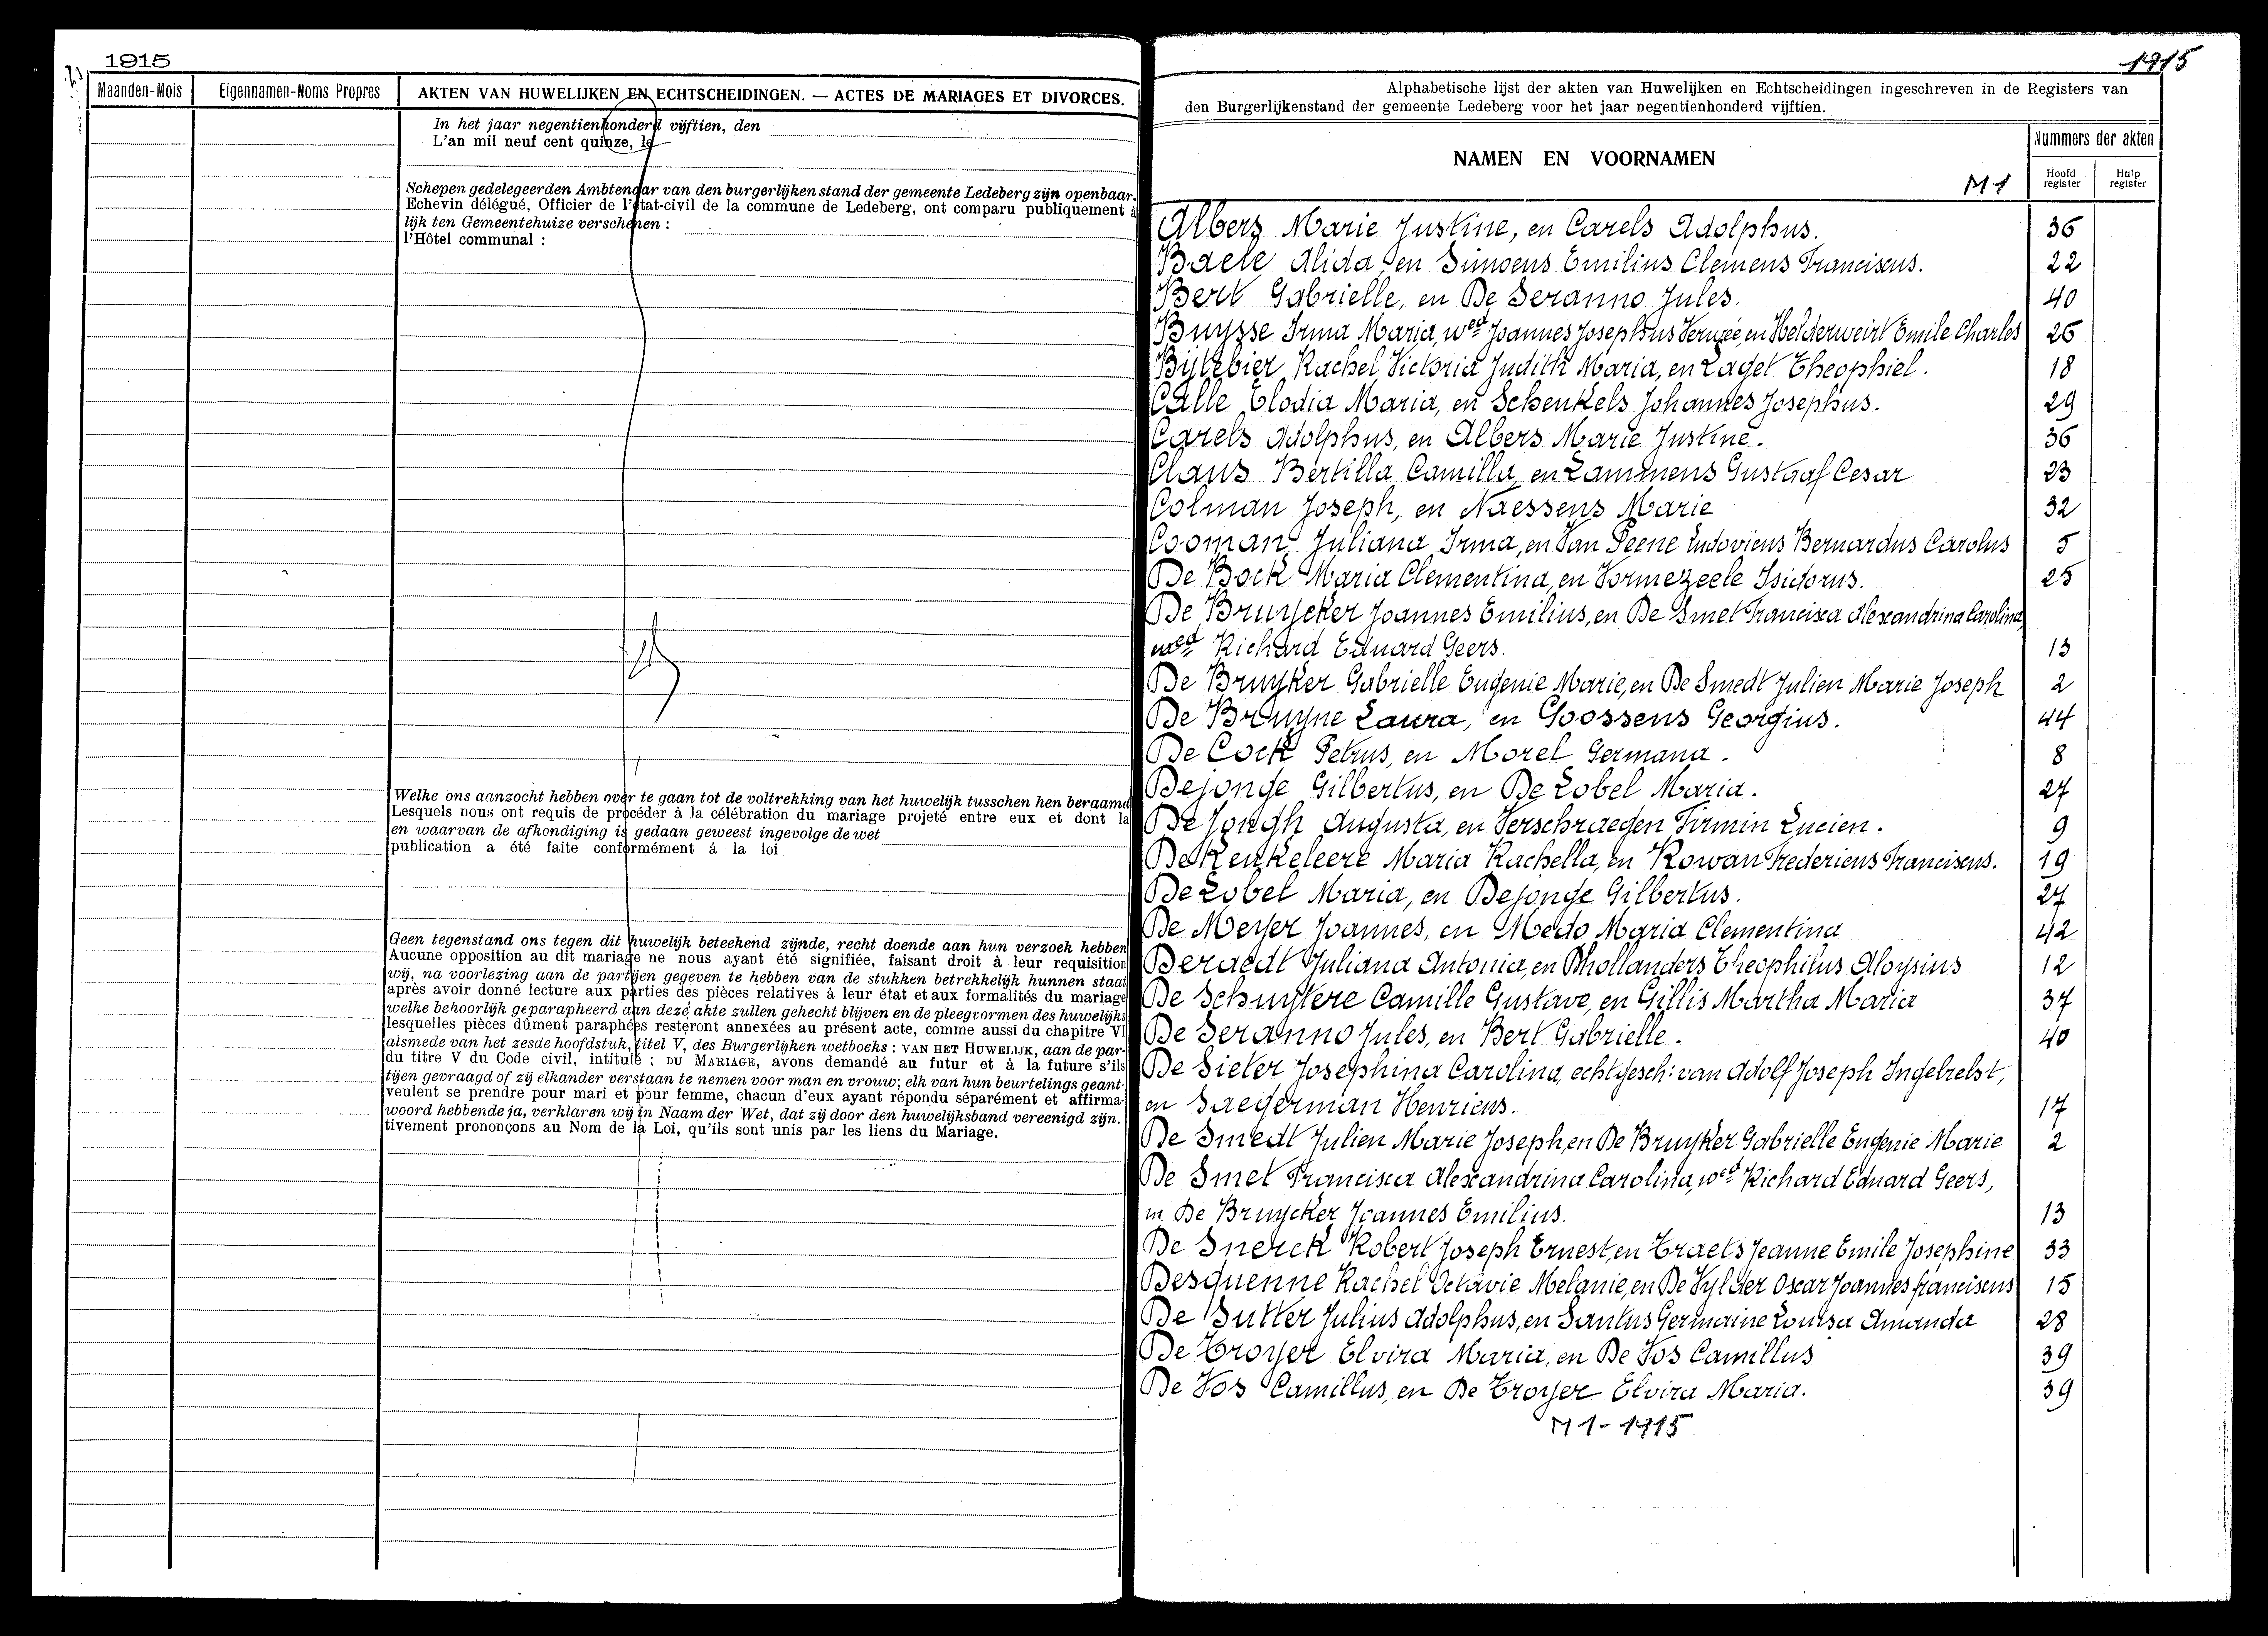 1915
Maanden-Mois
Eigennamen-Noms Propres
AKTEN VAN HUWELIJKEN EN ECHTSCHEIDINGEN. — ACTES DE MARIAGES ET DIVORCES.
In het jaar negentienhonderd vijftien, den
L'an mil neuf cent quinze, le
Schepen gedelegeerden Ambtenaar van den burgerlijken stand der gemeente Ledeberg zijn openbaar-
Echevin délégué, Officier de l'état-civil de la commune de Ledeberg, ont comparu publiquement à
lijk ten Gemeentehuize verschenen :
l'Hôtel communal :
Welke ons aanzocht hebben over te gaan tot de voltrekking van het huwelijk tusschen hen beraamd
Lesquels nous ont requis de procéder à la célébration du mariage projeté entre eux et dont la
en waarvan de afkondiging is gedaan geweest ingevolge de wet
publication a été faite conformément á la loi
Geen tegenstand ons tegen dit huwelijk beteekend zijnde, recht doende aan hun verzoek hebben
Aucune opposition au dit mariage ne nous ayant été signifiée, faisant droit à leur requisition
wij, na voorlezing aan de partijen gegeven te hebben van de stukken betrekkelijk hunnen staat
après avoir donné lecture aux parties des pièces relatives à leur état et aux formalités du mariage
welke behoorlijk geparapheerd aan deze akte zullen gehecht blijven en de pleegvormen des huwelijks
lesquelles pièces dûment paraphées resteront annexées au présent acte, comme aussi du chapitre VI
alsmede van het zesde hoofdstuk, titel V, des Burgerlijken wetboeks : VAN HET HUWELIJK, aan de par-
du titre V du Code civil, intitulé : DU MARIAGE, avons demandé au futur et à la future s'ils
tijen gevraagd of zij elkander verstaan te nemen voor man en vrouw; elk van hun beurtelings geant-
veulent se prendre pour mari et pour femme, chacun d'eux ayant répondu séparément et affirma-
woord hebbende ja, verklaren wij in Naam der Wet, dat zij door den huwelijksband vereenigd zijn.
tivement prononçons au Nom de la Loi, qu'ils sont unis par les liens du Mariage.
1915
Alphabetische lijst der akten van Huwelijken en Echtscheidingen ingeschreven in de Registers van
den Burgerlijkenstand der gemeente Ledeberg voor het jaar negentienhonderd vijftien.
NAMEN EN VOORNAMEN
Nummers der akten
M1
Hoofd register
Hulp register
Albers Marie Justine, en Carels Adolphus. 36
Baele Alida, en Simoens Emilius Clemens Franciscus. 22
Bert Gabrielle, en De Seranno Jules. 40
Buysse Irma Maria, wed Joannes Josephus Vernée, en Helderweirt Emile Charles 26
Bijtebier Rachel Victoria Judith Maria, en Laget Theophiel. 18
Calle Elodia Maria, en Schenkels Johannes Josephus. 29
Carels Adolphus, en Albers Marie Justine. 36
Claus Bertilla Camilla, en Lammens Gustaaf Cesar 23
Colman Joseph, en Naessens Marie 32
Cooman Juliana Irma, en Van Peene Ludovicus Bernardus Carolus 5
De Bock Maria Clementina, en Vormezeele Isidorus. 25
De Bruycker Joannes Emilius, en De Smet Francisca Alexandrina Carolina,
wed Richard Eduard Geers. 13
De Bruyker Gabrielle Eugenie Marie, en De Smedt Julien Marie Joseph 2
De Bruyne Laura, en Goossens Georgius. 44
De Cock Petrus, en Morel Germana. 8
Dejonge Gilbertus, en De Lobel Maria. 27
De Jongh Augusta, en Verschraegen Firmin Lucien. 9
Dekenkeleere Maria Rachella, en Rowan Fredericus Franciscus. 19
De Lobel Maria, en Dejonge Gilbertus. 27
De Meyer Joannes, en Medo Maria Clementina 42
Deraedt Juliana Antonia, en Dhollanders Theophilus Aloysius 12
De Schuytere Camille Gustave, en Gillis Martha Maria 37
De Seranno Jules, en Bert Gabrielle. 40
De Sieter Josephina Carolina, echtgesch: van Adolf Joseph Ingelrelst,
en Saegerman Henricus. 17
De Smedt Julien Marie Joseph, en De Bruyker Gabrielle Eugenie Marie 2
De Smet Francisca Alexandrina Carolina, wed Richard Eduard Geers,
en De Bruycker Joannes Emilius. 13
De Snerck Robert Joseph Ernest, en Traets Jeanne Emile Josephine 33
Desquenne Rachel Octavie Melanie, en De Vylder Oscar Joannes franciscus 15
De Sutter Julius Adolphus, en Santus Germaine Louisa Amanda 28
De Troyer Elvira Maria, en De Vos Camillus 39
De Vos Camillus, en De Troyer Elvira Maria. 39
M1-1915